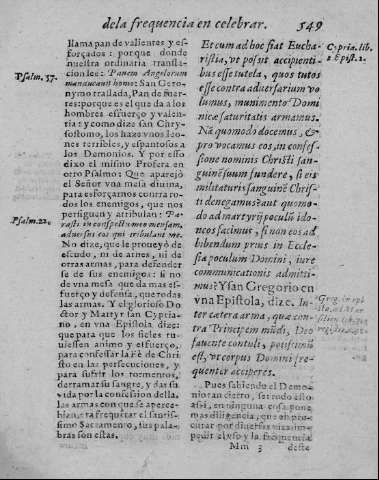 dela frequencia en celebrar. 549
Psalm. 77.
Psalm. 22.
llama pan de valientes y es-
forçados: porque donde
nuestra ordinaria transla-
cion lee: Panem Angelorum
manducauit homo: San Gero-
nymo traslada, Pan de fuer-
tes: porque es el que da a los
hombres esfuerço y valen-
tia: y como dize san Chry-
sostomo, los haze vnos leo-
nes terribles, y espantosos a
los Demonios. Y por esso
dixo el mismo Profeta en
otro Psalmo: Que aparejò
el Señor vna mesa diuina,
para esforçarnos contra to-
dos los enemigos, que nos
persiguen y atribulan: Pa-
rasti in conspectu meo mensam,
aduersus eos qui tribulant me.
No dize, que le proueyò de
escudo, ni de arnes, ni de
otras armas, para defender
se de sus enemigos: si no
de vna mesa que da mas es-
fuerço y defensa, que todas
las armas. Y el glorioso Do-
ctor y Martyr san Cypria-
no, en vna Epistola dize:
que para que los fieles tu-
uiessen animo y esfuerço,
para confessar la Fè de Chri
sto en las persecuciones, y
para sufrir los tormentos,
derramar su sangre, y dar su
vida por la confession della,
las armas con que se aperce-
bian, era frequentar el santis-
simo Sacramento, sus pala-
bras son estas.
Et cum ad hoc fiat Eucha-
ristia, vt possit accipienti-
bus esse tutela, quos tutos
esse contra aduersarium vo
lumus, munimento Domi
nicæ saturitatis armamus.
Nã quomodo docemus, &
prouocamus eos, in confes-
sione nominis Christi san-
guinẽ suum fundere, si eis
militaturis sanguinẽ Chris-
ti denegamus? aut quomo-
do ad martyrij poculũ ido-
neos facimus, si non eos ad
bibendum prius in Eccle-
sia poculum Domini, iure
communicationis admitti-
mus? Y san Gregorio en
vna Epistola, dize. In-
ter cætera arma, quæ con-
tra Principem mũdi, Deo
fauente contulit, potissimũ
est, vt corpus Domini fre-
quenter acciperes.
Pues sabiendo el Demo-
nio tan cierto, ser todo esto
assi, en ninguna cosa pone
mas diligencia, que en pro-
curar por diuersas vias im-
pedir el vso y la frequencia
Mm 3 deste
Cypria. lib.
1. Epist. 2.